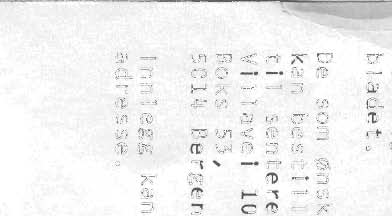 bladet.
De som ønsk
kan bestill
til sentere
Villavei 10
Boks 53,
5014 Bergen
Innlegg kan
adresse.